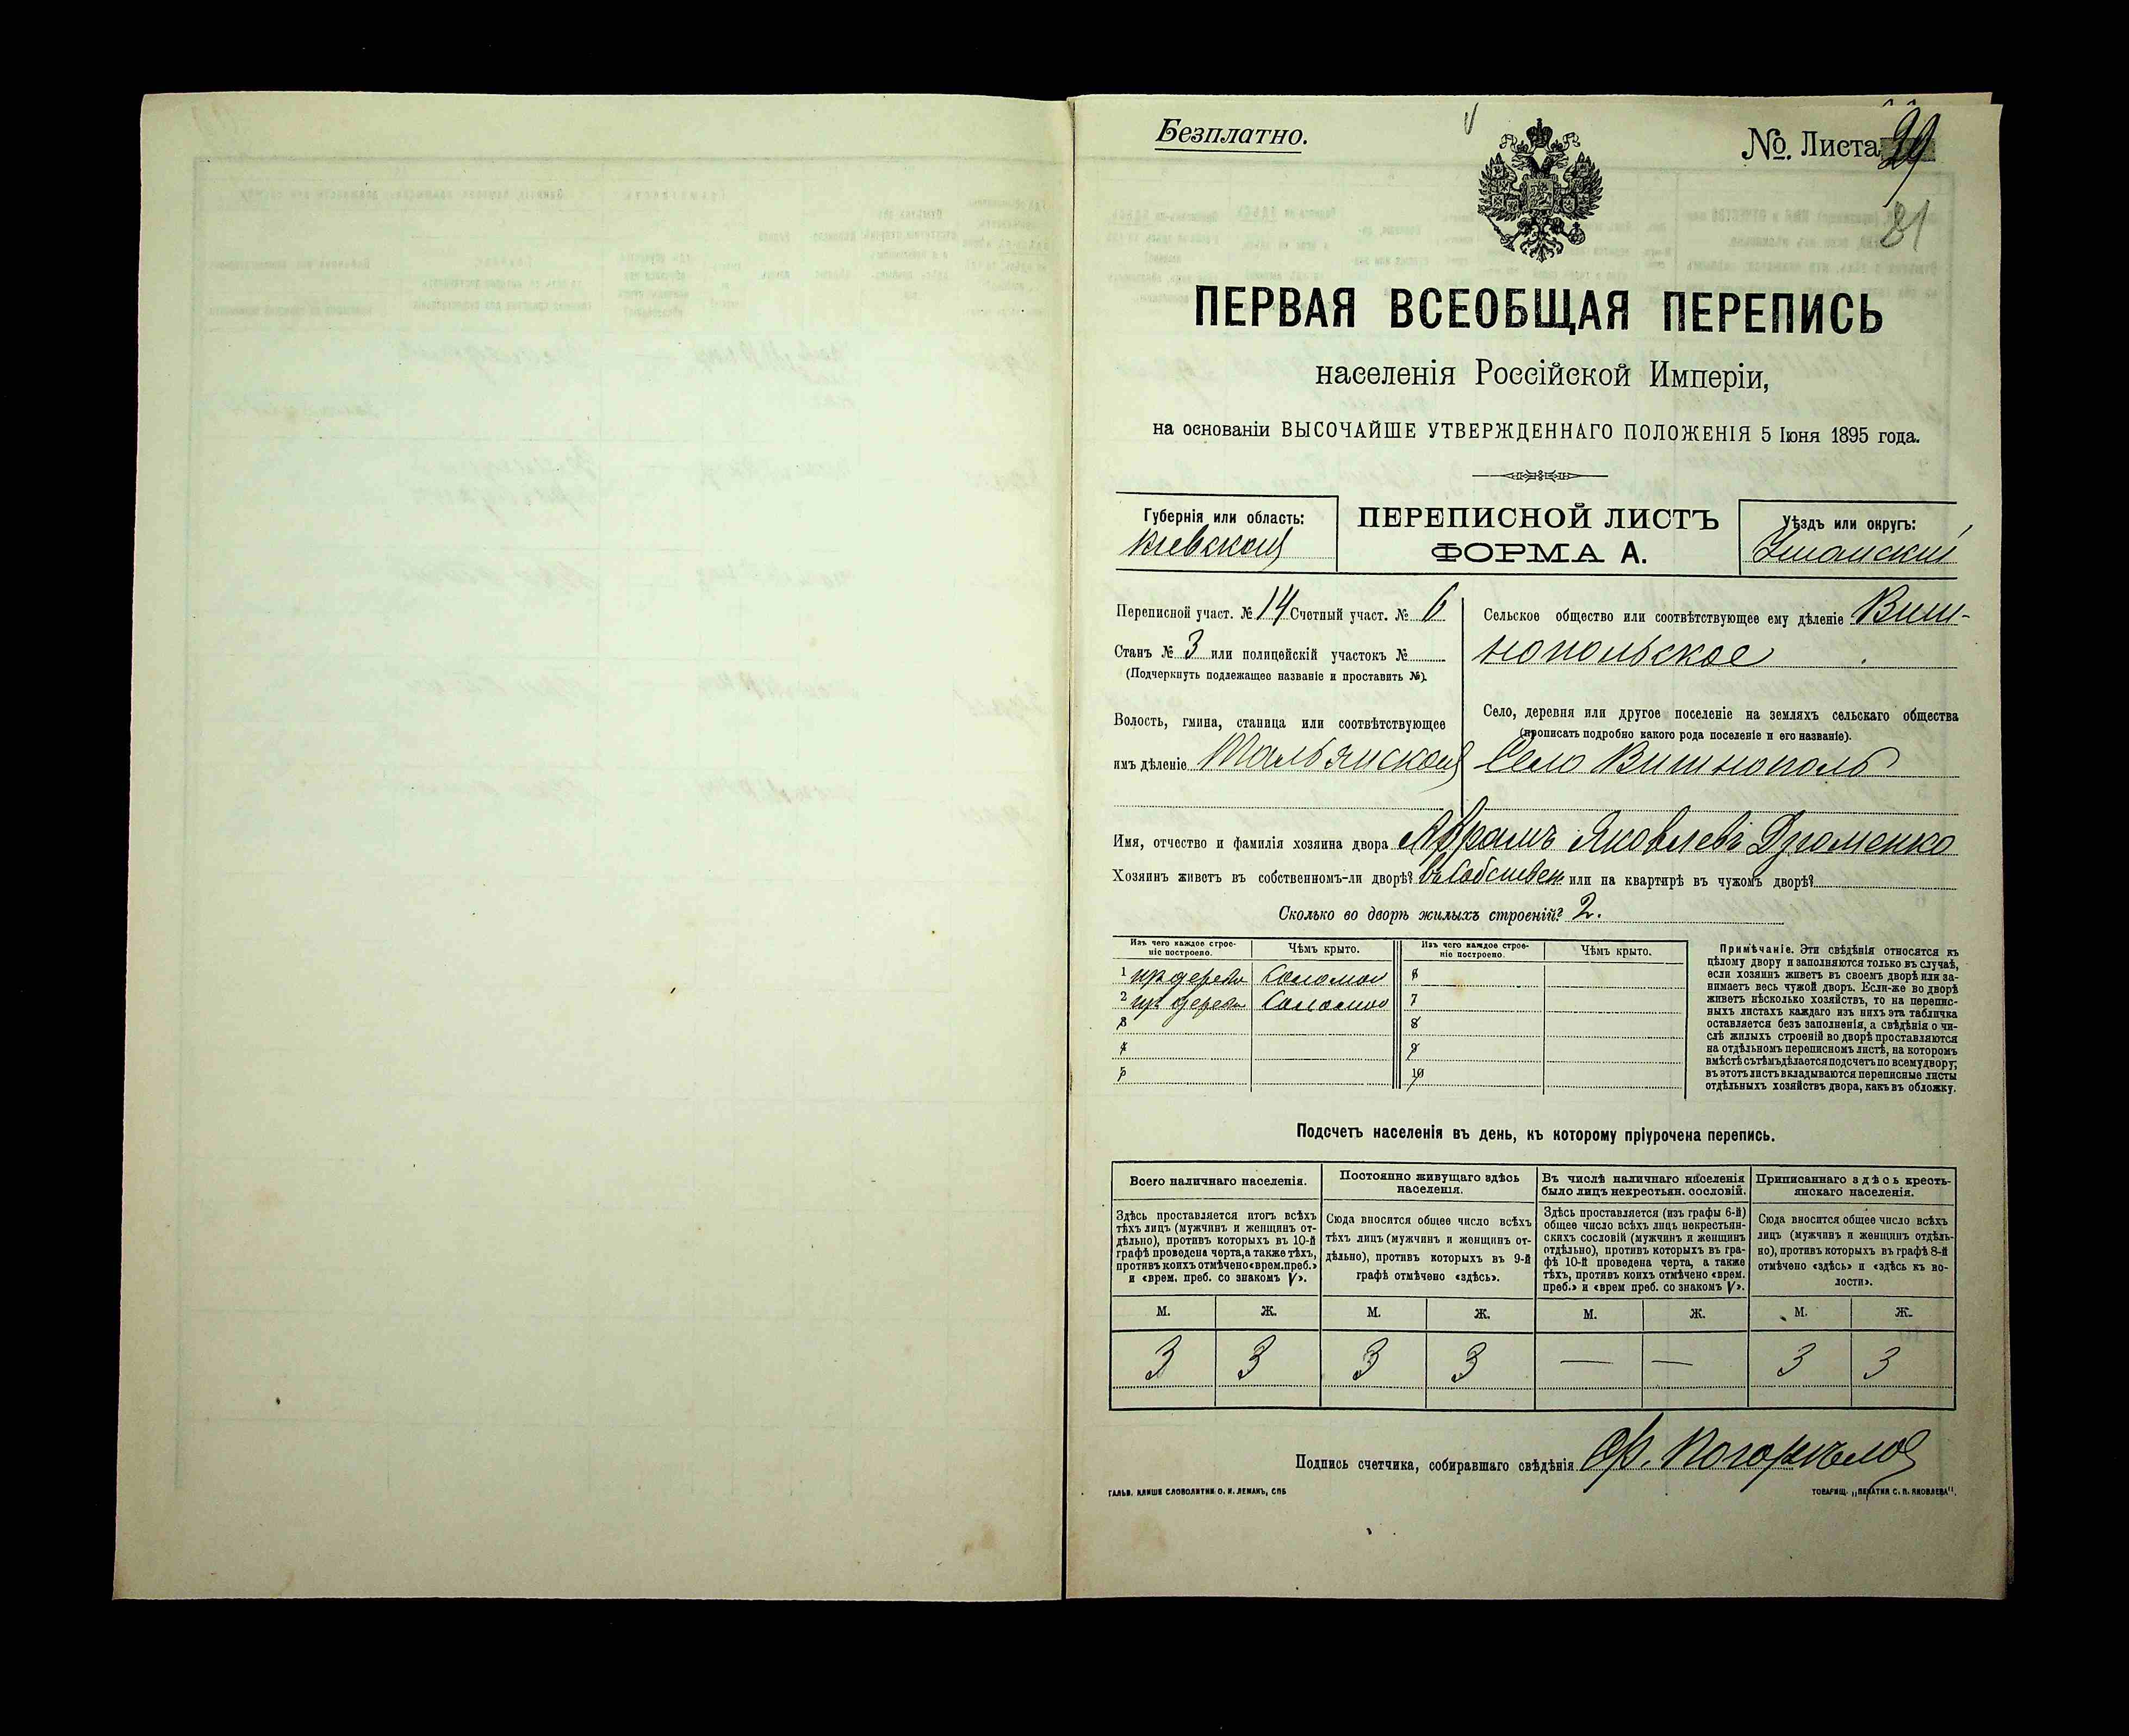 Безплатно.
№. Листа 39
81
ПЕРВАЯ ВСЕОБЩАЯ ПЕРЕПИСЬ
населенія Россійской Имперіи,
на основаніи ВЫСОЧАЙШЕ УТВЕРЖДЕННАГО ПОЛОЖЕНІЯ 5 Іюня 1895 года.
Губернія или область:
Кіевская
ПЕРЕПИСНОЙ ЛИСТЪ
ФОРМА А.
Уѣздъ или округъ:
Уманскій
Переписной участ. № 14 Счетный участ. № 6
Станъ № 3 или полицейскій участокъ №
(Подчеркнуть подлежащее названіе и проставить №).
Волость, гмина, станица или соотвѣтствующее
имъ дѣленіе Тальянская
Сельское общество или соотвѣтствующее ему дѣленіе Виш-
нопольское
Село, деревня или другое поселеніе на земляхъ сельскаго общества
(прописать подробно какого рода поселеніе и его названіе).
Село Вишнополь
Имя, отчество и фамилія хозяина двора Абрамъ Яковлевъ
Хозяинъ живетъ въ собственномъ-ли дворѣ? въ собствен или на квартирѣ въ чужомъ дворѣ?
Сколько во дворѣ жилыхъ строеній? 2.
Изъ чего каждое строе-
ніе построено.
Чѣмъ крыто.
Изъ чего каждое строе-
ніе построено.
Чѣмъ крыто.
1 изъ дерева Соломою 6
2 изъ дерева Соломою 7
3 8
4 9
5 10
Примѣчаніе. Эти свѣдѣнія относятся къ
цѣлому двору и заполняются только въ случаѣ,
если хозяинъ живетъ въ своемъ дворѣ или за-
нимаетъ весь чужой дворъ. Если-же во дворѣ
живетъ нѣсколько хозяйствъ, то на перепис-
ныхъ листахъ каждаго изъ нихъ эта табличка
оставляется безъ заполненія, а свѣдѣнія о чи-
слѣ жилыхъ строеній во дворѣ проставляются
на отдѣльномъ переписномъ листѣ, на которомъ
вмѣстѣ съ тѣмъ дѣлается подсчетъ по всему двору;
въ этотъ листъ вкладываются переписные листы
отдѣльныхъ хозяйствъ двора, какъ въ обложку.
Подсчетъ населенія въ день, къ которому пріурочена перепись.
Всего наличнаго населенія.
Здѣсь проставляется итогъ всѣхъ
тѣхъ лицъ (мужчинъ и женщинъ от-
дѣльно), противъ которыхъ въ 10-й
графѣ проведена черта, а также тѣхъ,
противъ коихъ отмѣчено «врем. преб.»
и «врем. преб. со знакомъ V».
Постоянно живущаго здѣсь
населенія.
Сюда вносится общее число всѣхъ
тѣхъ лицъ (мужчинъ и женщинъ от-
дѣльно), противъ которыхъ въ 9-й
графѣ отмѣчено «здѣсь».
Въ числѣ наличнаго населенія
было лицъ некрестьян. сословій.
Здѣсь проставляется (изъ графы 6-й)
общее число всѣхъ лицъ некрестьян-
скихъ сословій (мужчинъ и женщинъ
отдѣльно), противъ которыхъ въ гра-
фѣ 10-й проведена черта, а также
тѣхъ, противъ коихъ отмѣчено «врем.
преб.» и «врем преб. со знакомъ V».
Приписаннаго здѣсь кресть-
янскаго населенія.
Сюда вносится общее число всѣхъ
лицъ (мужчинъ и женщинъ отдѣль-
но), противъ которыхъ въ графѣ 8-й
отмѣчено «здѣсь» и «здѣсь къ во-
лости».
М. Ж. М. Ж. М. Ж. М. Ж.
3 3 3 3 — — 3 3
Подпись счетчика, собиравшаго свѣдѣнія
ГАЛЬВ. КЛИШЕ СЛОВОЛИТНИ О. И. ЛЕМАНЪ, СПБ
ТОВАРИЩ. „ПЕЧАТНЯ С. П. ЯКОВЛЕВА".